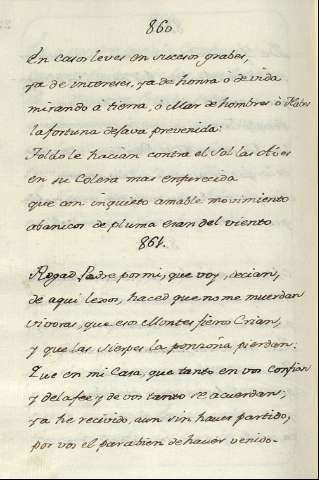 860
En casos leves en sucesos grabes,
ya de intereses, ya de honra ó de vida
mirando á tierra, ó Mar de hombres ó Naves
la fortuna dejava prevenida:
Toldo le hacian contra el Sol las Aves
en su Colera mas enfurecida
que con inquieto amable movimiento
abanicos de pluma eran del viento
861.
Rogad Padre por mi, que voy, decian,
de aqui lexos, haced que no me muerdan
vivoras, que esos Montes fieros Crian,
y que las Sierpes la ponzoña pierdan:
Que en mi Casa, que tanto en vos confian
y de la fee y de vos tanto se acuerdan,
ya he recivido, aun sin haver partido,
por vos el parabien de haver venido.